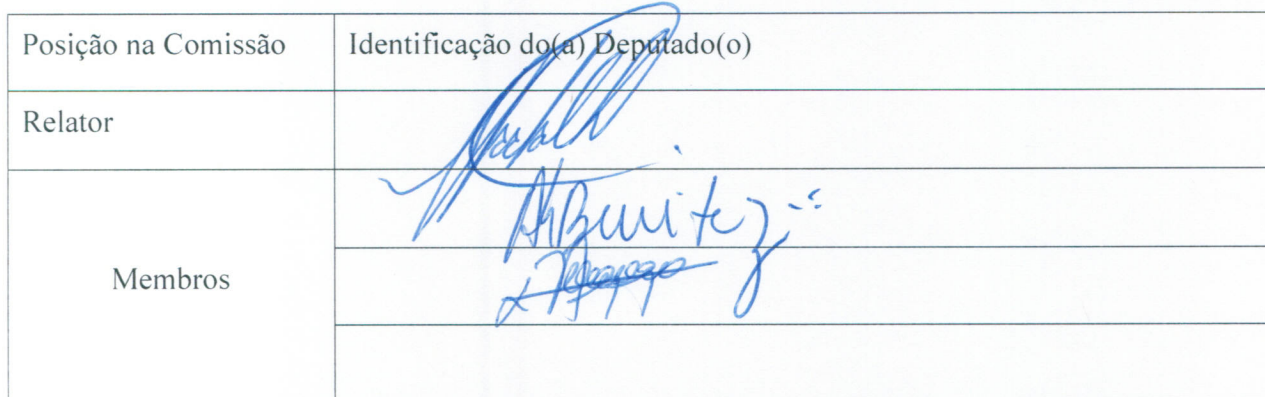 Posição na Comissão
Identificação do(a) Deputado(o)
Relator
Benitez
Membros